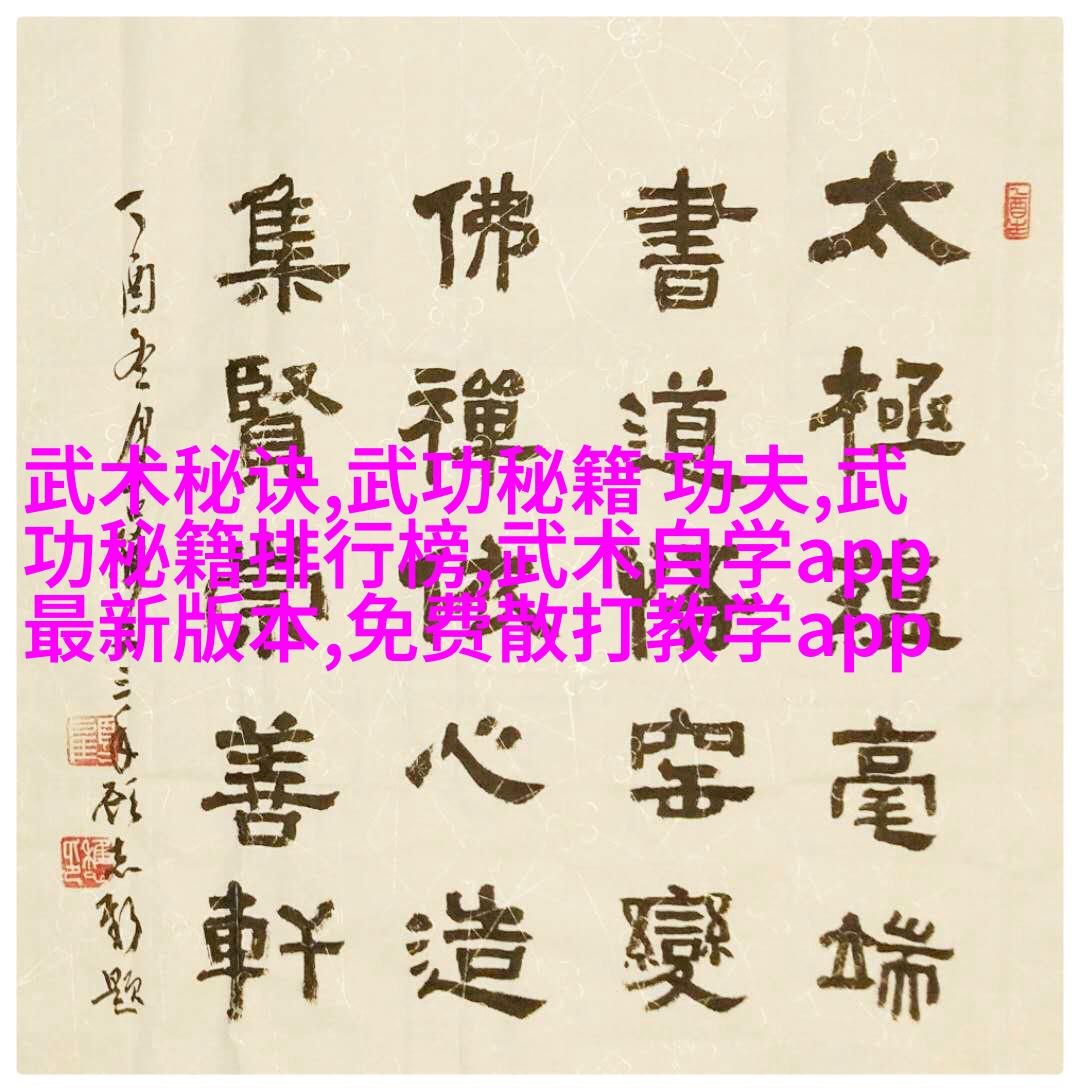 武术秘诀,武功秘籍 功夫,武
功秘籍排行榜,武术自学app
最新版本,免费散打教学app
太極毫端
書道窑變
佛禪心造
集賢善軒
丁酉冬月 志 题